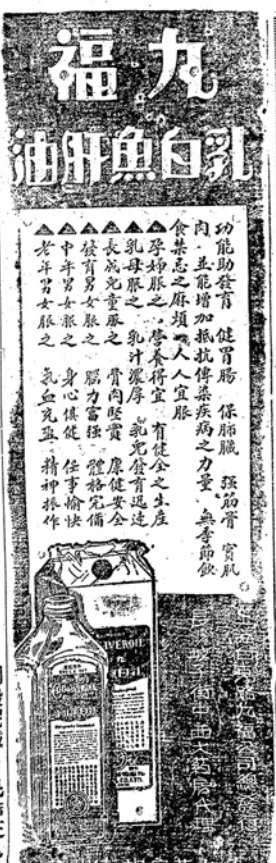 九福
乳白魚肝油
功能助發育 健胃腸 保肺臟 強筋骨 實肌
肉 並能增加抵抗傳染疾病之力量 無季節飲
食禁忌之麻煩 人人宜服
▲孕婦服之 營養得宜 有健全之生產
▲乳母服之 乳汁濃厚 乳兒發育迅速
▲長成兒童服之 骨肉堅實 康健安全
▲發育男女服之 腦力富強 體格完備
▲中年男女服之 身心俱健 任事愉快
▲老年男女服之 氣血充盈 精神振作
九福公司總發行
中西大藥房代
IVEROIL